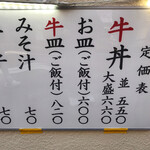 定価表
牛丼 並 五五〇
大盛 六六〇
お皿(ご飯付)六〇〇
牛皿(ご飯付)八二〇
みそ汁 七〇
七〇